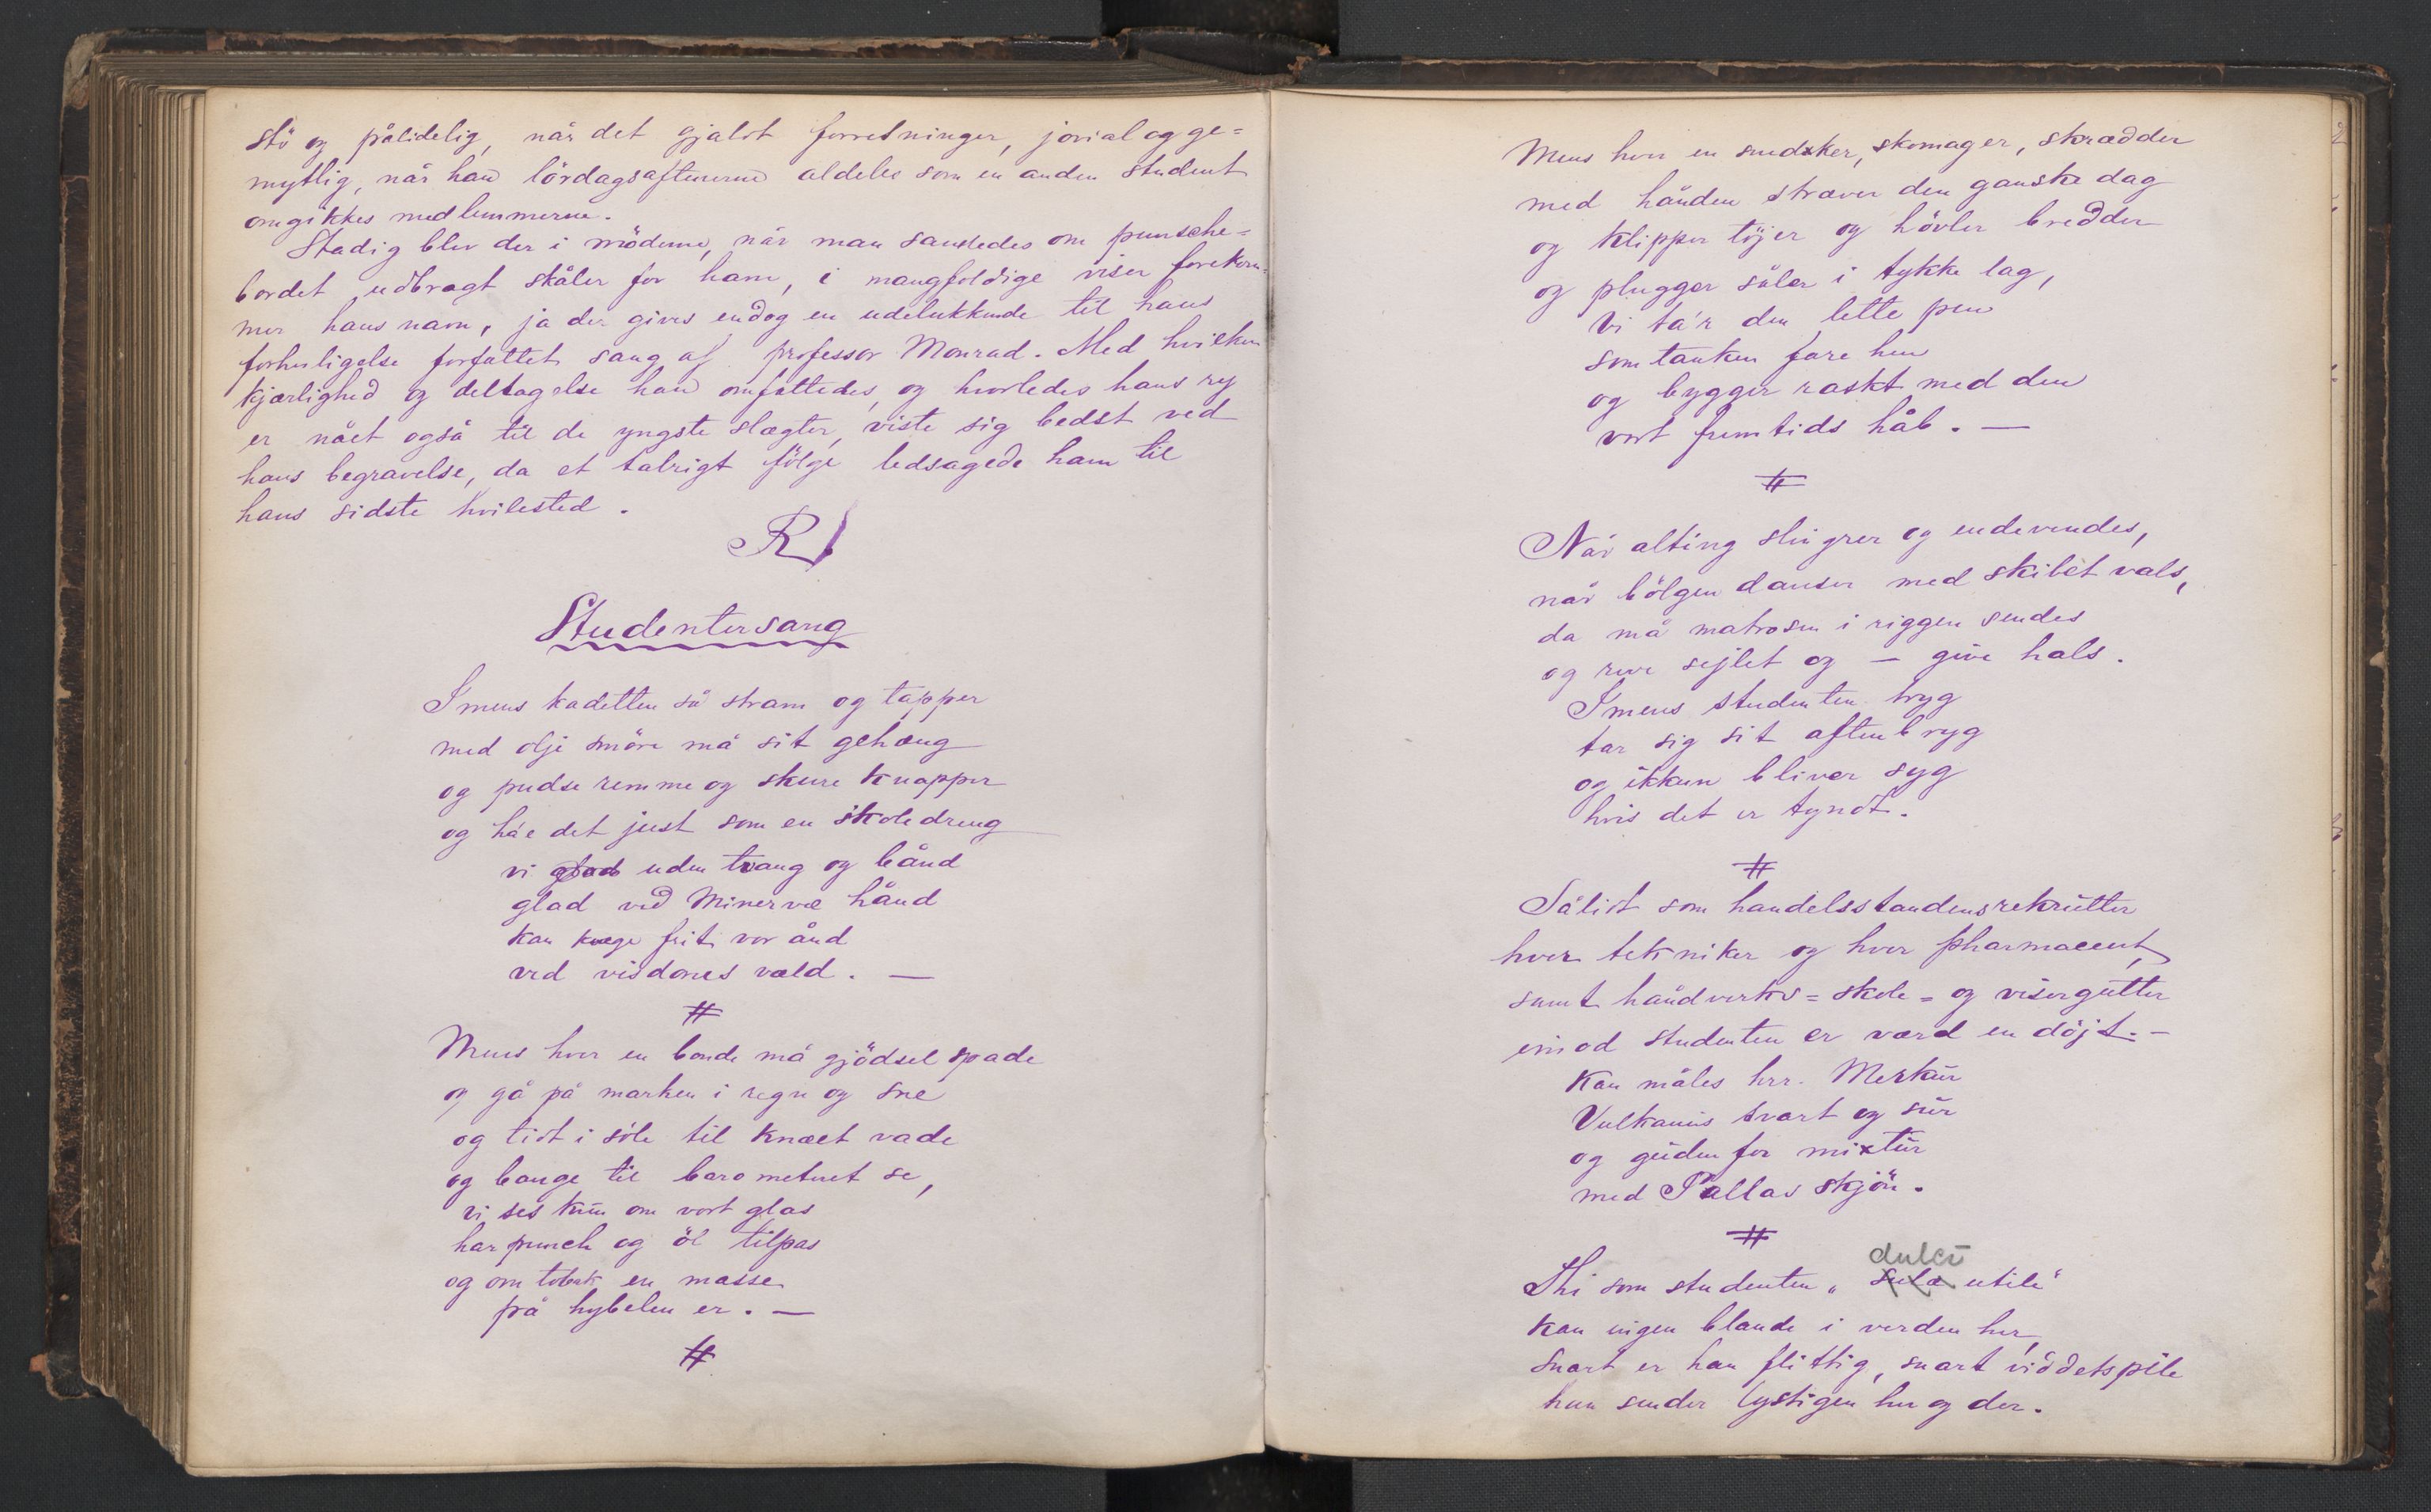 stö og pålidelig, når det gjaldt forretninger, jovial og ge=
mytlig, når han lördagsaftenerne aldeles som en anden student
omgikkes medlemmerne.
Stadig blev der i möderne, når man samledes om punsche=
bordet udbragt skåler for ham, i mangfoldige viser forekom=
mer hans navn, ja der gives endog en udelukkende til hans
forherligelse forfattet sang af professor Monrad. Med hvilken
kjærlighed og deltagelse han omfattedes, og hvorledes hans ry
er nået også til de yngste slægter, viste sig bedst ved
hans begravelse, da et talrigt fölge ledsagede ham til
hans sidste hvilested.
R
Studentersang
Imens kadetten så stram og tapper
med olje smöre må sit gehæng
og pudse remme og skure knapper
og ha'e det just som en skoledreng
vi uden tvang og bånd
glad ved Minervæ hånd
kan kvæge frit vor ånd
ved visdoms væld. —
#
Mens hver en bonde må gjödsel spade
og gå på marken i regn og sne
og tidt i söle til knæet vade
og bange til barometeret se,
vi ses kun om vort glas
har punch og öl tilpas
og om tobak en masse
på hybelen er. —
#
Mens hver en snedker, skomager, skrædder
med hånden stræver den ganske dag
og klipper töjer og hövler bredder
og plugger såler i tykke lag,
vi ta'r den lette pen
som tanken fare hen
og bygger raskt med den
vort fremtids håb. —
#
Når alting slingrer og endevendes,
når bölgen danser med skibet vals,
da må matrosen i riggen sendes
og reve sejlet og — give hals.
Imens studenten tryg
tar sig sit aftenbryg
og ikkun bliver syg
hvis det er tyndt.
#
Sålidt som handelsstandens rekrutter
hver tekniker og hver pharmaceut,
samt håndverks= skole= og visergutter
imod studenten er værd en döjt. —
Kan måles hrr. Merkur
Vulkanus svart og sur
og guden for mixtur
med Pallas skjön.
#
dulci
Thi som studenten „ utile"
kan ingen blande i verden her,
snart er han flittig, snart viddets pile
han sender lystigen her og der.